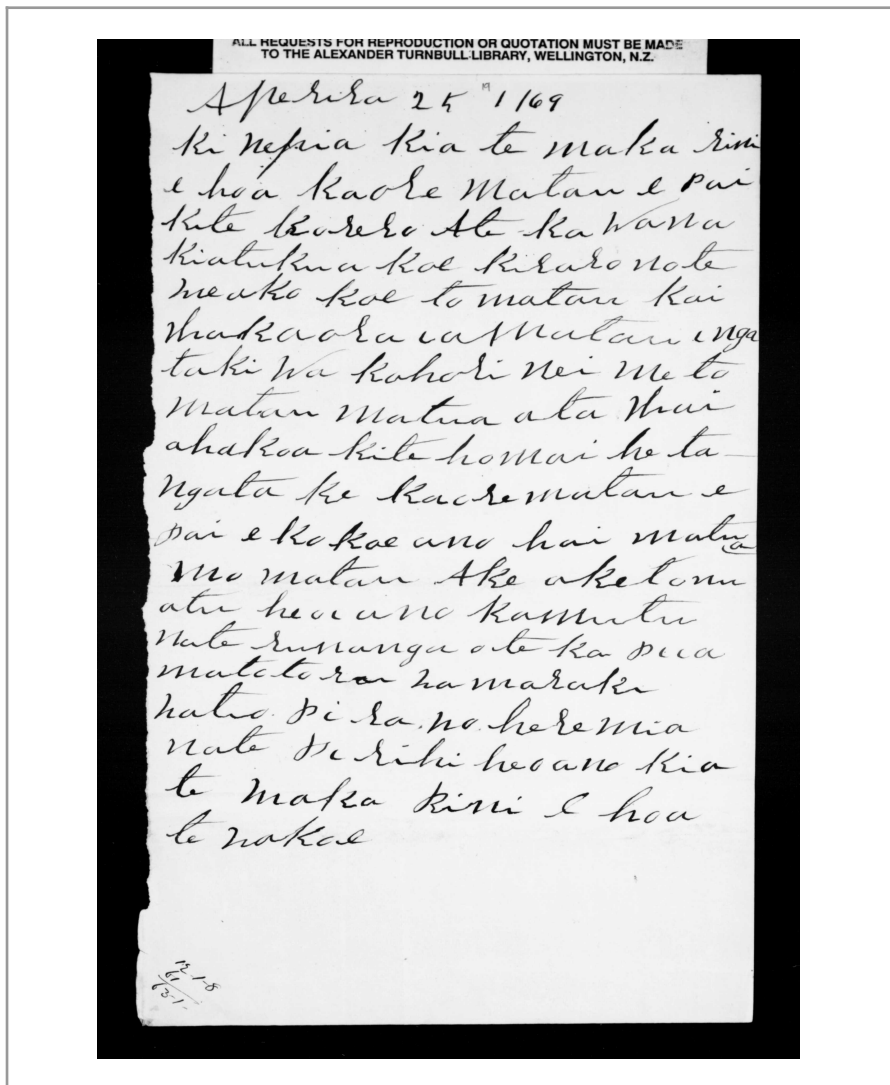 ALL REQUESTS FOR REPRODUCTION OR QUOTATION MUST BE MADE
TO THE ALEXANDER TURNBULL LIBRARY, WELLINGTON, N.Z.
Aperira 25 1/69
Ki Nepia kia te maka rini
e hoa kaore matau e pai
kite korero Ate kawana
kiatukua koe kiraro note
meako koe to matau kai
whakaora ia Matau i nga
takiwa kahori nei me to
matau matua ata whai
ahakoa kite homai he ta-
ngata ke kaore matau e
pai e ko koe ano hai matua
mo matau Ake aketonu
atu heoi ano kamutu
nate runanga ote ka pua
matotoru na maraki
natio. Pi ra. no. heremia
nate Pirihi heoano kia
te maka Rini e hoa
te nakoe